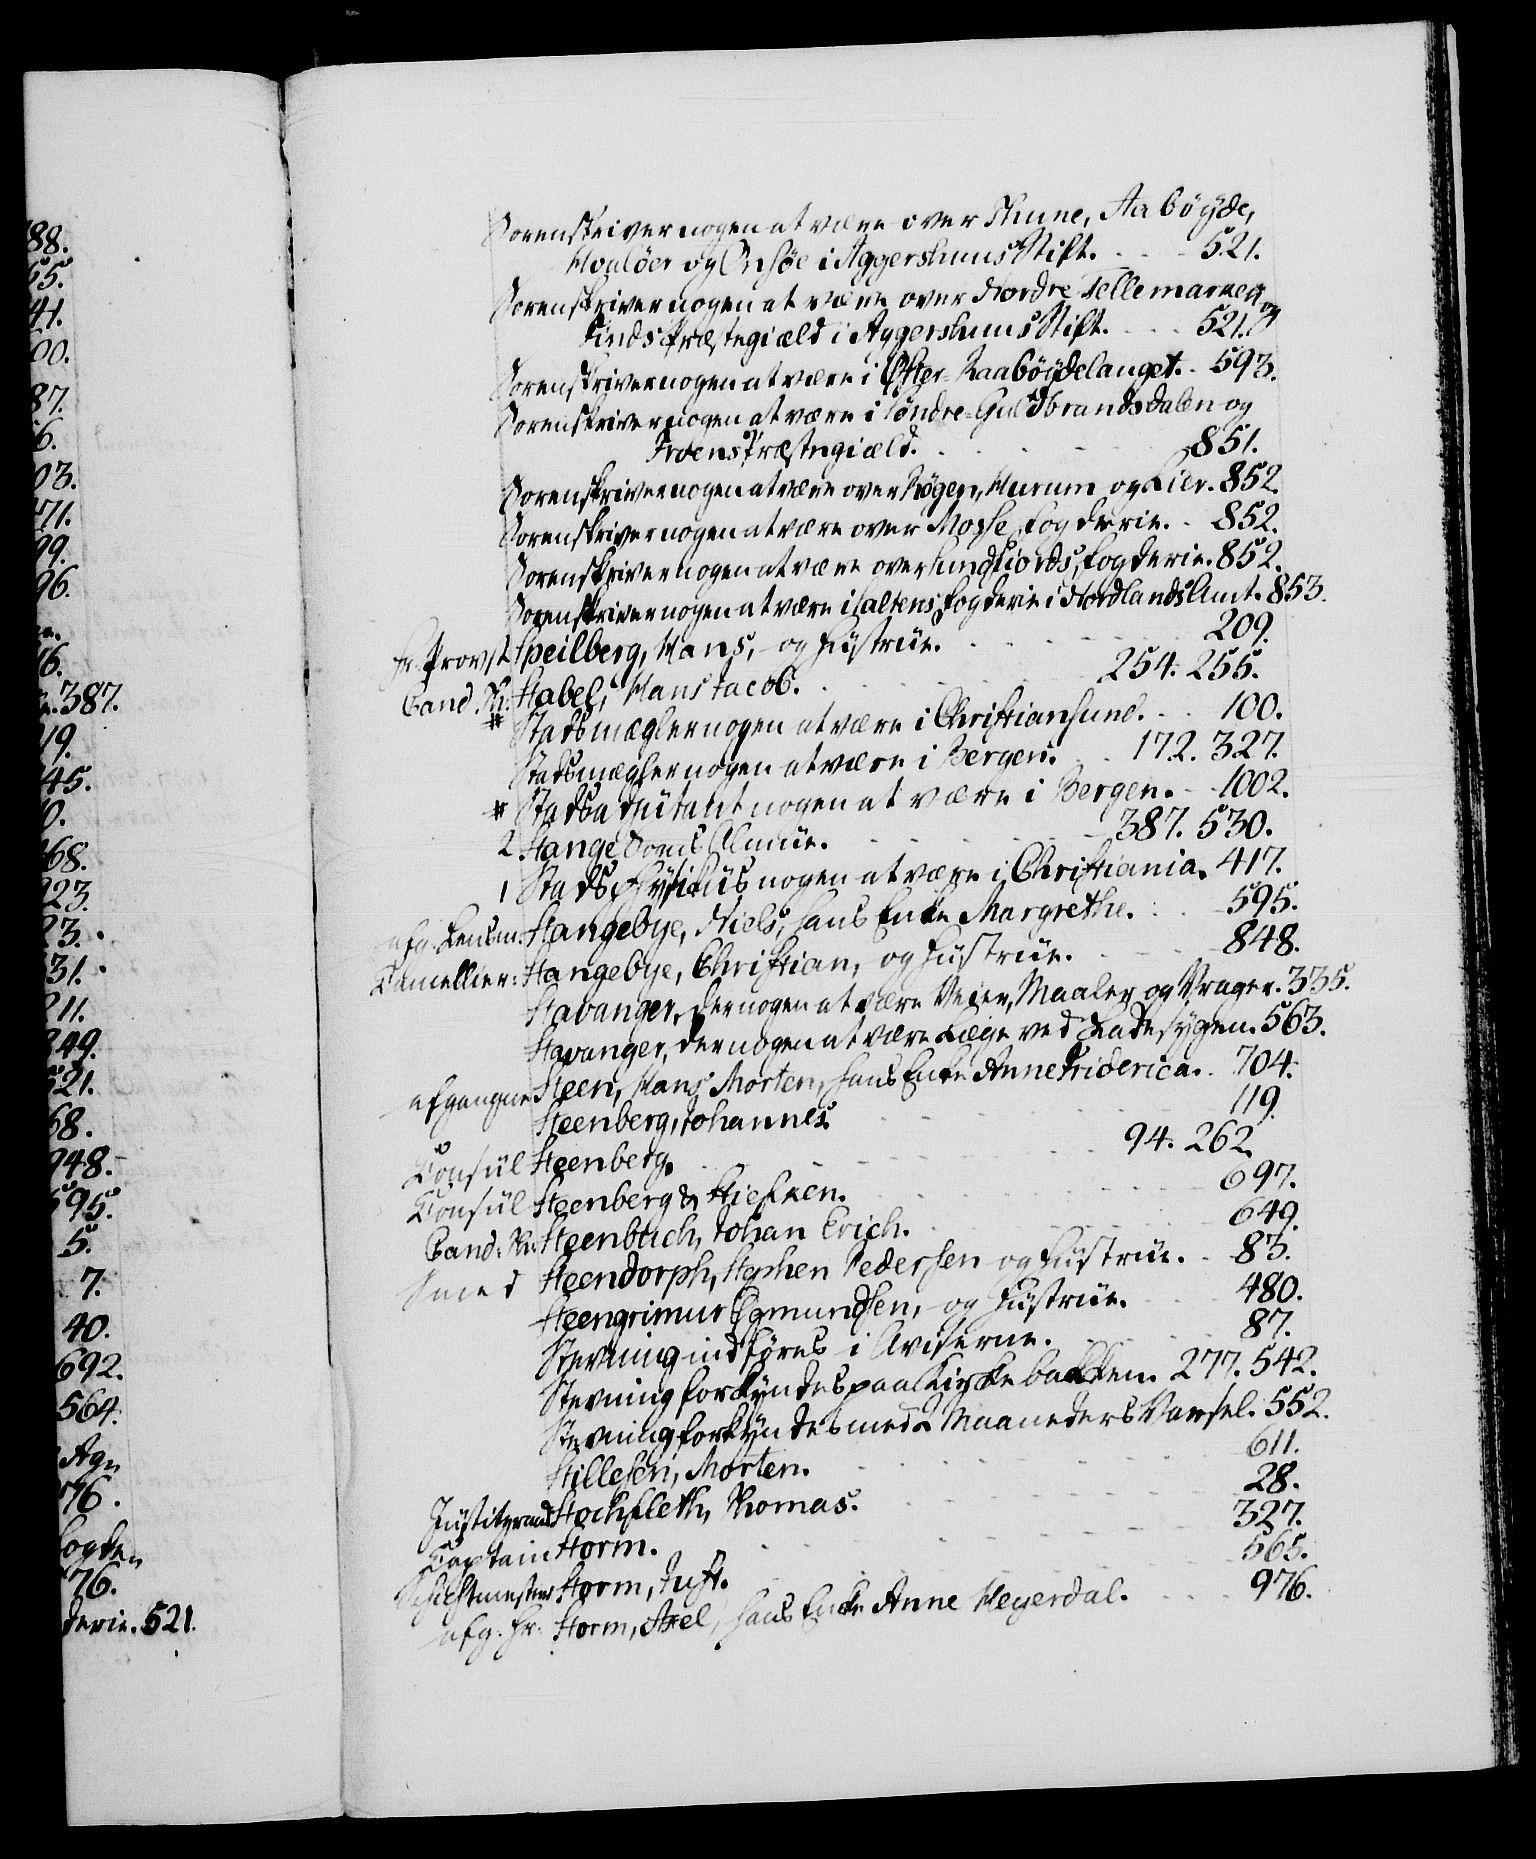 88.
55.
41.
00.
87.
6.
03.
71.
99.
96.
16.
n. 387.
19.
45.
0.
68.
923.
23.
31.
211.
249.
521.
68.
948.
595.
5.
7.
40.
692.
564.
Ag.
76.
Fogden
76.
derie. 521.
Sorenskriver nogen at være over Thune, Aabøyde,
Hvaløer og Onsøe i Aggershuus Stift. 521.
Sorenskriver nogen at være over Nordre Tellemarken og
Tinds Præstegiæld i Aggershuus Stift. 521.
Sorenskriver nogen at være i Øster-Raabøydelauget. 593.
Sorenskriver nogen at være i Søndre-Guldbrandsdalen og
Froens Præstegiæld. 851.
Sorenskriver nogen at være over Røgen, Hurum og Lier. 852.
Sorenskriver nogen at være over Mosse fogderie. 852.
Sorenskriver nogen at være over Sundfiords fogderie. 852.
Sorenskriver nogen at være i Saltens fogderie i Nordlands Amt. 853.
hr. Provst Speilberg, Hans, og Hustrüe. 209.
Cand. Th: Stabel, Hans Jacob. 254. 255.
# Stadsmægler nogen at være i Christiansund. 100.
Stadsmægler nogen at være i Bergen. 172. 327.
# Stadsadjutant nogen at være i Bergen. 1002.
2. Stange Sogns Almue. 387. 530.
1 Stads Physikus nogen at være i Christiania. 417.
afg. Lensm. Stangebye, Niels, hans Enke Margrethe. 595.
Cancellier: Stangebye, Christian, og Hustrüe. 848.
Stavanger, der nogen at være Veier, Maaler og Vrager. 335.
Stavanger, der nogen at være Læge ved Radesygen. 563.
afgangne Steen, Hans Morten, hans Enke Anne Friderica. 704.
Steenberg, Johannes. 119.
Consül Steenberg. 94. 262.
Consül Steenberg & Stiefken. 697.
Cand: Th: Steenbuch, Johan Erich. 649.
Smed Steendorph, Stephen Pedersen og Hustrüe. 83.
Steengrimur Egmundsen, og Hustrüe. 480.
Stevning indføres i Aviserne. 87.
Stevning forkyndes paa Kirkebakken. 277. 542.
Stevning forkyndes med 2 Maaneders Varsel. 552.
Stillesen, Morten. 611.
Justitzraad Stockfleth, Thomas. 28.
Captain Storm. 327.
Schichtmester Storm, Just. 565.
afg. hr: Storm, Axel, hans Enke Anne Heyerdal. 976.